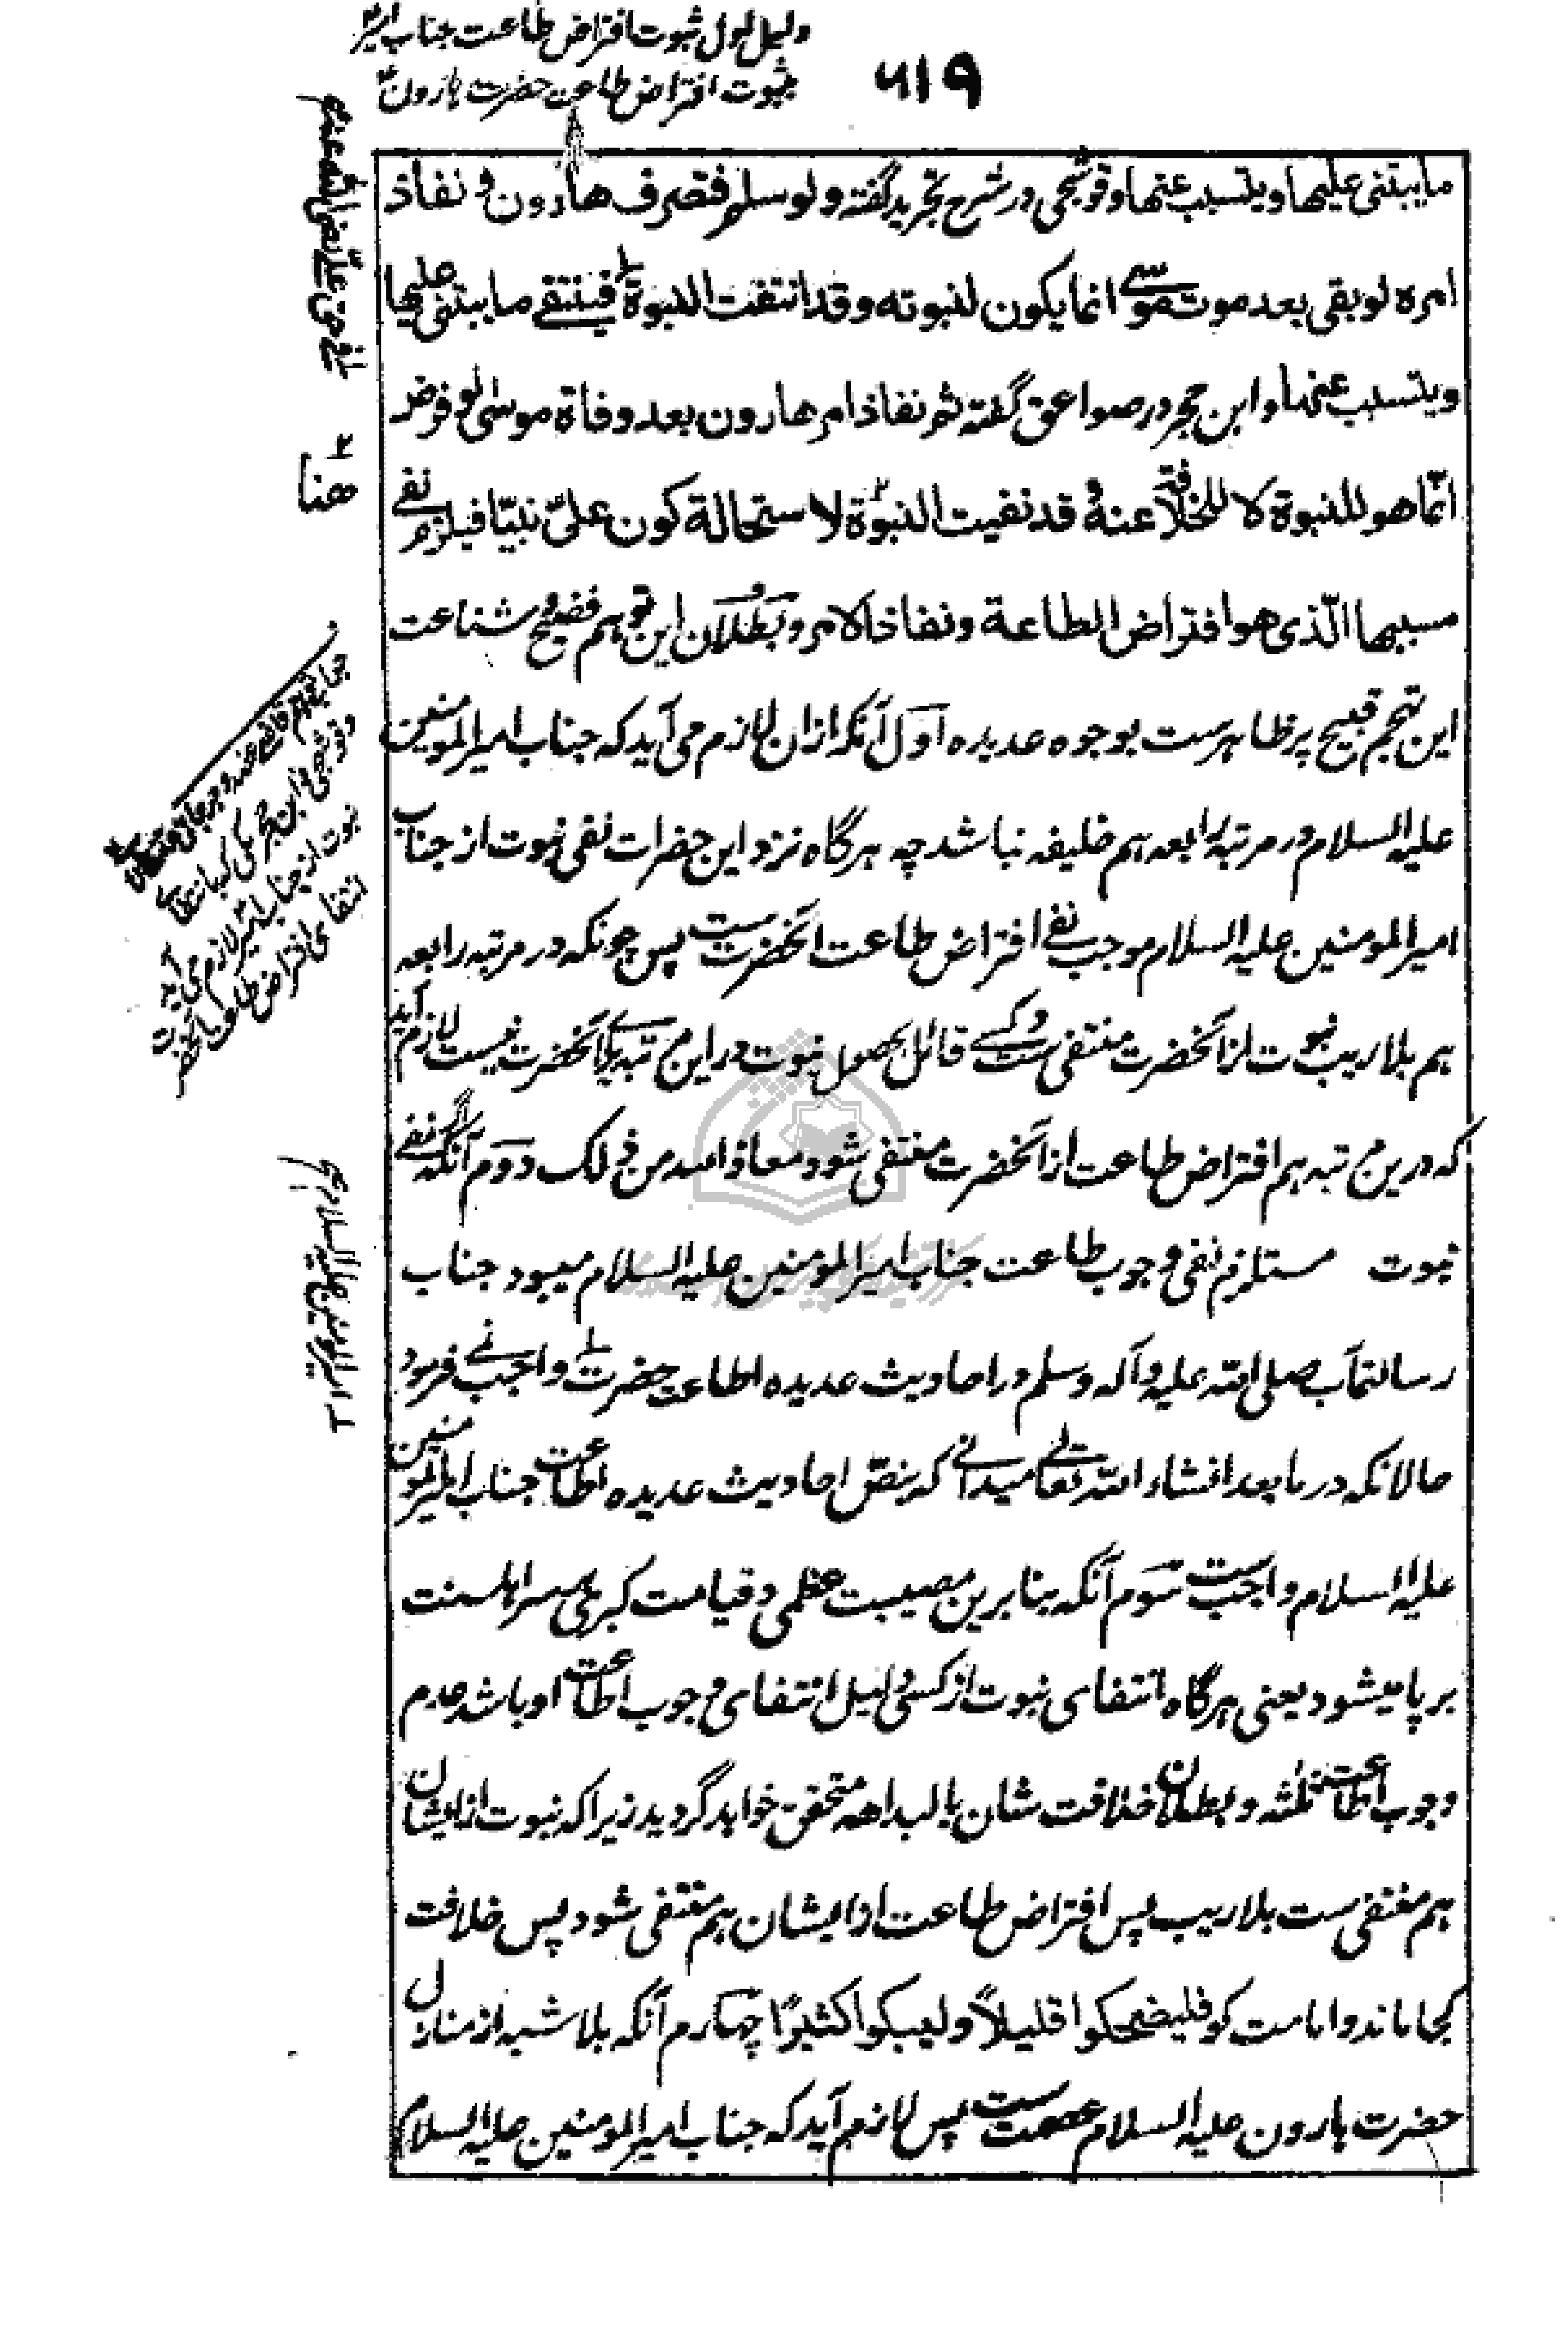 دلیل اول ثبوت افتراض طاعت جناب امیرؑ
بثبوت افتراض طاعت حضرت ہارونؑ
۶۱۹
مایبتنی علیها ویتسبب عنها وقوشجی در شرح تجرید گفته ولو سلم فتصرف هارون و نفاذ
امره لو بقی بعد موت موسیٰ انما یکون لنبوته وقد انتفت النبوة فینتفے مایبتنی علیها
ویتسبب عنها و ابن حجر در صواعق گفته ثم نفاذ امر هارون بعد وفاة موسیٰ لو فرض
انّما هو للنبوة لا للخلافة عنه وقد نفیت النبوّة لاستحالة کون علیّ نبیّا فیلزم نفے
مسببها الّذی هو افتراض الطاعة ونفاذ الامر وبطلان این توهم فضیح و شناعت
این تهجم قبیح پر ظاہرست بوجوه عدیده اوّل آنکه ازان لازم می آید که جناب امیرالمومنین
علیه السلام در مرتبۂ رابعه ہم خلیفه نباشد چه ہرگاه نزد این حضرات نفی نبوت از جناب
امیرالمومنین علیه السلام موجب نفے افتراض طاعت آنحضرت ست پس چونکه در مرتبه رابعه
ہم بلاریب نبوت از آنحضرت منتفی ست و کسے قائل بحصول نبوت در این مرتبه برای آنحضرت نیست لازم آید
که درین مرتبه ہم افتراض طاعت از آنحضرت منتفی شود معاذ الله من ذلک دوم آنکه اگر نفے
نبوت مستلزم نفی وجوب طاعت جناب امیرالمومنین علیه السلام میبود جناب
رسالتمآب صلی الله علیه وآله وسلم در احادیث عدیده اطاعت حضرت را واجب نے فرمود
حالانکه در مابعد انشاء الله تعالے میدانے که بنصّ احادیث عدیده اطاعت جناب امیرالمومنین
علیه السلام واجب ست سوم آنکه بنابرین مصیبت عظمی و قیامت کبری بر سر اہلسنت
برپا میشود یعنی ہرگاه انتفای نبوت از کسی دلیل انتفای وجوب اطاعت او باشد عدم
وجوب اطاعت ثلثه و بطلان خلافت شان بالبداهه متحقق خواہد گردید زیرا که نبوت از ایشان
ہم منتفی ست بلاریب پس افتراض طاعت از ایشان ہم منتفی شود پس خلافت
کجا ماند و امامت کو فلیضحکوا قلیلاً ولیبکوا کثیرًا چہارم آنکه بلاشبه از منازل
حضرت ہارون علیه السلام عصمت ست پس لازم آید که جناب امیرالمومنین علیه السلام
هنا
نبوت از جناب امیرؑ لازم می آید
انتفای افتراض طاعت آنحضرت
امیرالمومنین علیه السلام